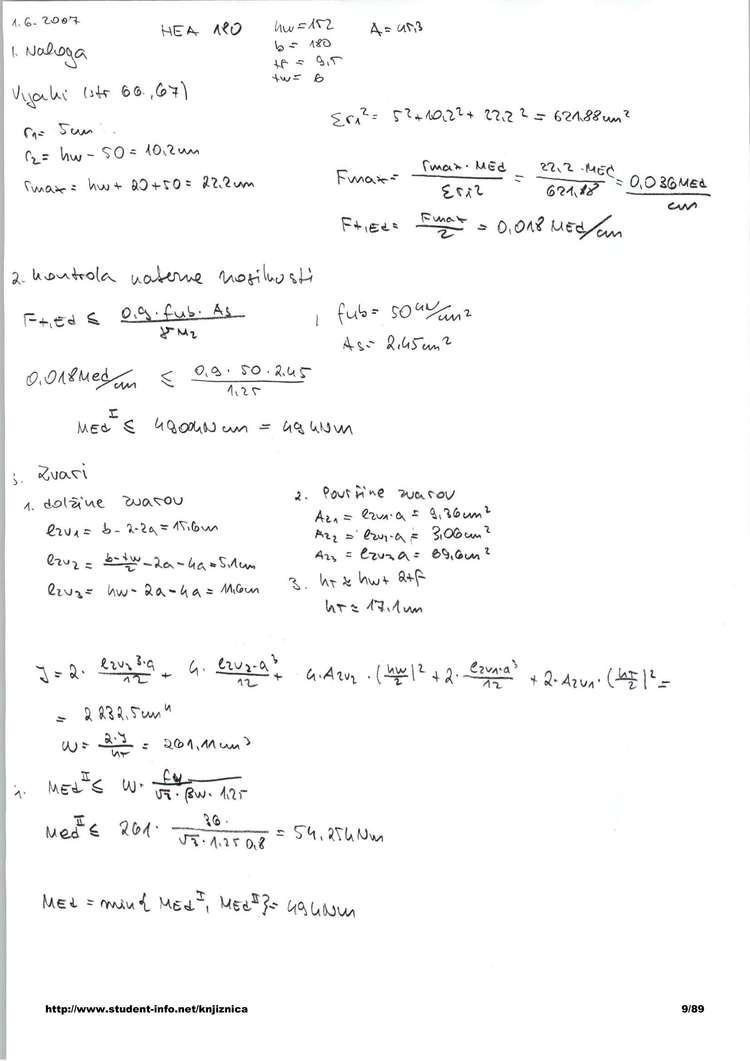 1.6.2007
HEA 180
hw=152
b= 180
tf = 9,5
tw= 6
A= 45,3
1. Naloga
Vijaki (str 66.,67)
r1= 5cm
r2= hw - 50 = 10,2cm
rmax= hw + 20+50 = 22,2cm
Σri² = 5²+10,2²+ 22,2² = 621,88cm²
Fmax= rmax · MEd / Σri² = 22,2 · MEd / 621,88 = 0,036 MEd / cm
Ft,Ed= Fmax / 2 = 0,018 MEd/cm
2. kontrola natezne nosilnosti
Ft,Ed ≤ 0,9 · fub · As / γM2 , fub= 50 kN/cm²
As= 2,45cm²
0,018 Med/cm ≤ 0,9 · 50 · 2,45 / 1,25
MEd^I ≤ 4900kN cm = 49 kNm
3. Zvari
1. dolžine zvarov
lzv1= b - 2·2a = 15,6cm
lzv2 = b-tw / 2 -2a - 4a = 5,1cm
lzv3= hw - 2a - 4a = 11,6cm
2. Površine zvarov
Az1 = lzv1·a = 9,36cm²
Az2 = lzv2·a = 3,06cm²
Az3 = lzv3·a = 69,6cm²
3. hT ≈ hw+ 2tf
hT ≈ 17,1cm
J = 2 · lzv3³·a / 12 + 4 · lzv2·a³ / 12 + 4·Azv2 · (hw/2)² + 2 · lzv1·a³ / 12 + 2·Azv1· (hT/2)² =
= 2232,5cm⁴
W= 2·J / hT = 261,11cm³
4. MEd^II ≤ W · fu / √3 · βw · 1,25
Med^II ≤ 261 · 36. / √3 · 1,25 0,8 = 54,25kNm
MEd = min{ MEd^I, MEd^II}= 49kNm
http://www.student-info.net/knjiznica
9/89